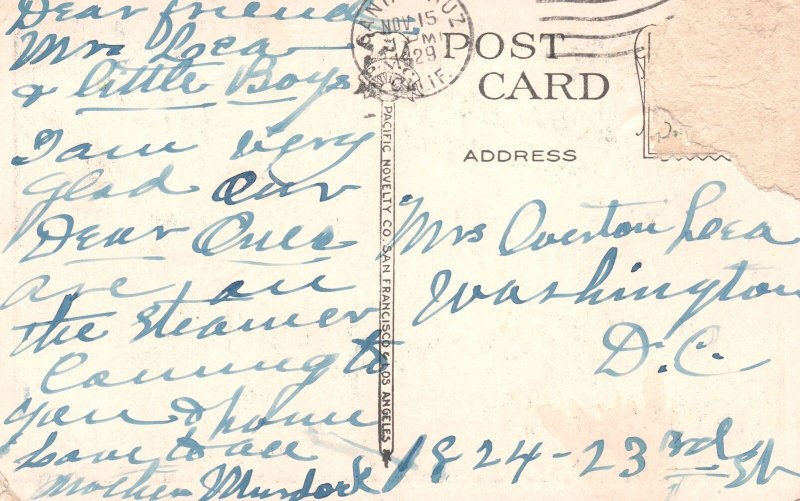 Dear friend
Mrs Lea
& little Boys
I am very
glad our
Dear Ones
are on
the steamer
Comming to
you & home
Love to all
Mother Murdock
SANTA CRUZ
NOV 15
1929
CALIF.
POST
CARD
ADDRESS
PACIFIC NOVELTY CO. SAN FRANCISCO & LOS ANGELES
Mrs Overton Lea
Washington
D.C.
1824-23rd St